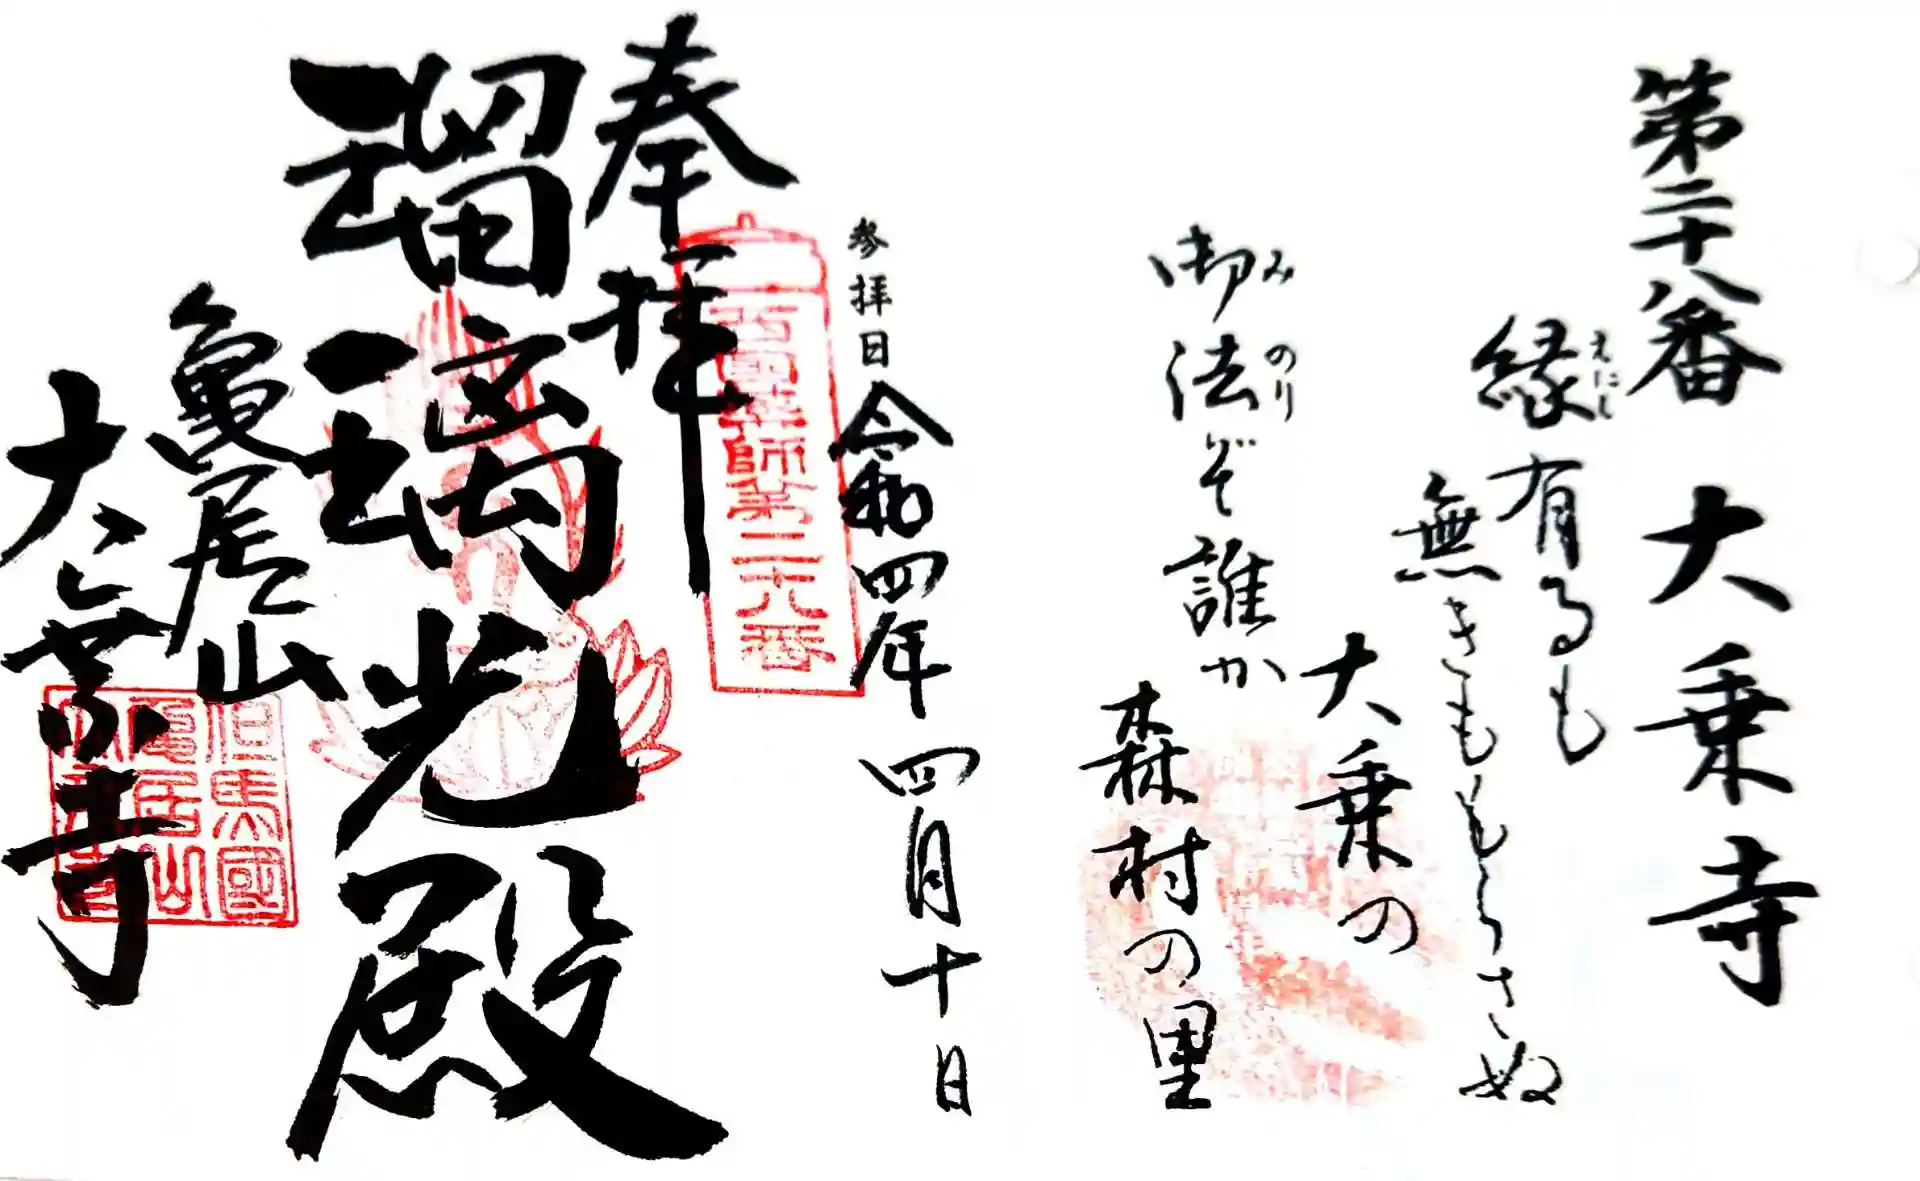 第二十八番 大乗寺
縁有るも
えにし
無きももらさぬ
大乗の
御法ぞ誰か
みのり
森村の里
参拝日 令和四年 四月十日
奉拝
西國薬師第二十八番
瑠璃光殿
亀居山
大乗寺
但馬國
亀居山
大乗寺